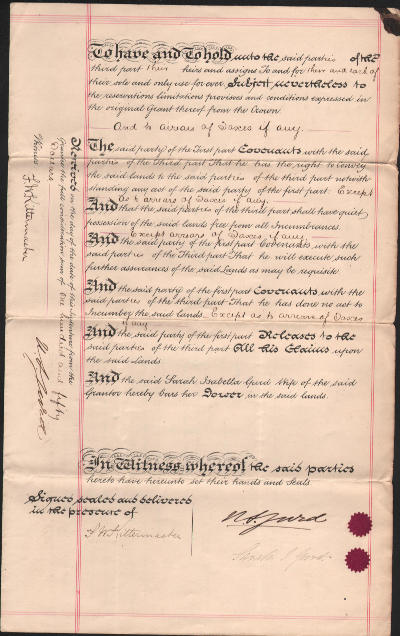 To have and To hold unto the said parties of the
third part their heirs and assigns To and for their and each of
their sole and only use for ever Subject nevertheless to
the reservations limitations provisoes and conditions expressed in
the original Grant thereof from the Crown
And to arrears of Taxes if any.
The said party of the First part Covenants with the said
parties of the Third part That he has the right to convey
the said lands to the said parties of the third part notwith
standing any act of the said party of the first part. Except
as to arrears of Taxes if any.
And that the said parties of the third part shall have quiet
possession of the said lands free from all Incumbrances.
Except arrears of Taxes if any.
And the said party of the first part Covenants with the
said parties of the Third part that he will execute such
further assurances of the said Lands as may be requisite.
And the said party of the first part Covenants with the
said parties of the third part That he has done no act to
Incumber the said lands. Except as to arrears of Taxes
if any
And the said party of the first part Releases to the
said parties of the third part All his Claims upon
the said Lands
And the said Sarah Isabella Gurd Wife of the said
Grantor hereby bars her Dower in the said lands.
In Witness whereof the said parties
hereto have hereunto set their hands and Seals.
Signed sealed and delivered
in the presence of
F W Kittermaster
R S Gurd
Sarah I Gurd
Received on the day of the date of this Indenture from the
Grantees the full consideration sum of One hundred and fifty
Dollars
Witness F W Kittermaster
R S Gurd